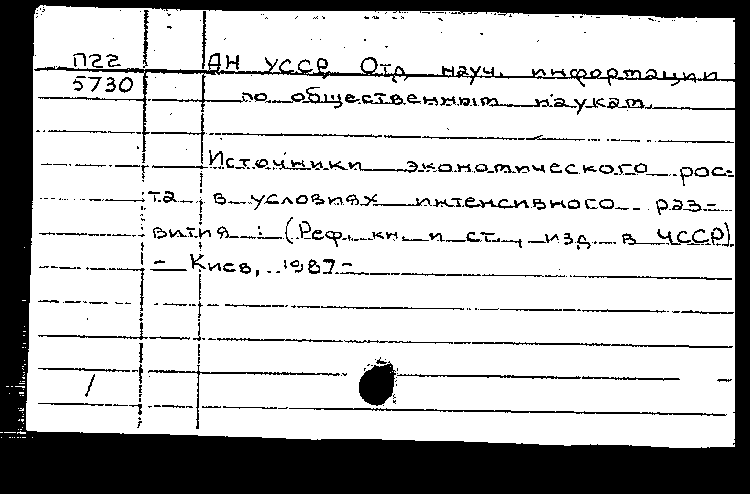 П22 АН УССР. Отд. науч. информации
5730 по общественным наукам.
Источники экономического рос-
та в условиях интенсивного раз-
вития : (Реф. кн. и ст., изд. в ЧССР)
- Киев, 1987-
/